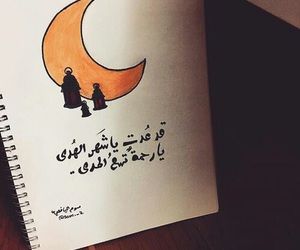 قد عُدت يا شهر الهُدى
يا رحمة تسع المدى